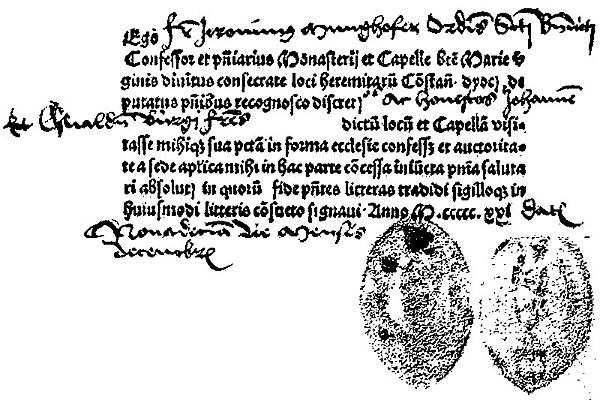 Ego fr Jeronimus Munghofer Ordis Scti Bndicti
Confessor et pñiarius Monasterij et Capelle btē Marie
ginis diuitus consecrate loci heremitarū Cōstañ. dyoc. de
putatus pñibus recognosco discret Ac honestos Johannē
Et Oswaldū Burgi frēs dictū locū et Capellā visi-
tasse mihiqꝫ sua pctā in forma ecclesie confessꝫ et auctorita-
te a sede aplica mihi in hac parte cōcessa iniūcta pñia saluta
ri absolui in quorū fidē pñtes litteras tradidi sigilloqꝫ in
huiusmodi litteris cōsueto signaui Anno M.ccccc.xxi dat
die Mensis
Decembr